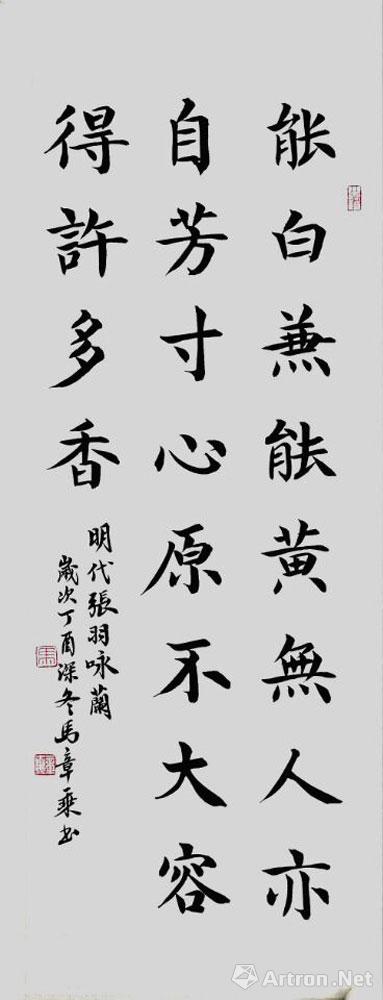 能白兼能黄無人亦
自芳寸心原不大容
得許多香
明代張羽咏蘭
歲次丁酉深冬馬章乘书
Artron.Net